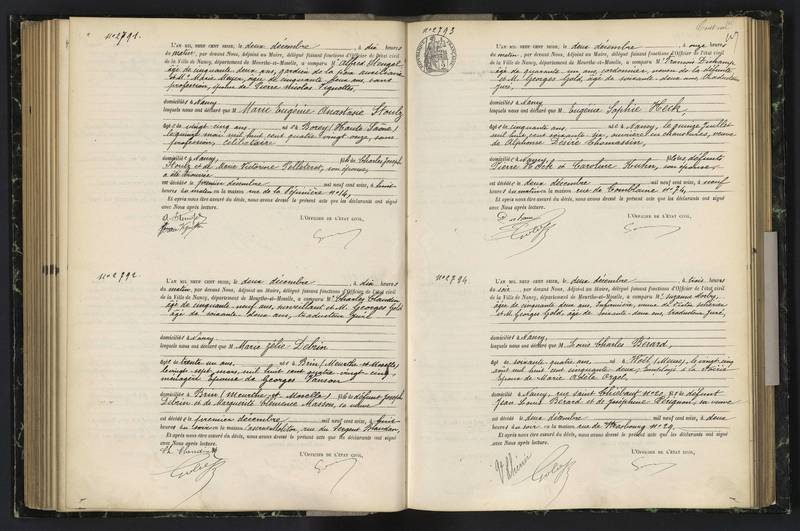 N° 2791.
L'AN MIL NEUF CENT SEIZE, le deux décembre, à dix heures
du matin, par devant Nous, Adjoint au Maire, délégué faisant fonctions d'Officier de l'état civil
de la Ville de Nancy, département de Meurthe-et-Moselle, a comparu M. Alfred
âgé de cinquante deux ans, gardien de la paix auxiliaire
et Me Marie Meyer, âgée de cinquante deux ans, sans
profession, épouse de Pierre Nicolas Vignolles,
domiciliés à Nancy
lesquels nous ont déclaré que M. Marie Eugénie Anastasie Stoulz
âgée de vingt cinq ans, née à Borey (Haute Saône)
le quinze mai mil huit cent quatre vingt onze, sans
profession, célibataire
domiciliée à Nancy, fille de Charles Joseph
Stoulz et de Marie Victorine Pelleteret, son épouse,
est décédée le premier décembre mil neuf cent seize, à
heures du matin en la maison rue de la Pépinière n° 14,
Et après nous être assuré du décès, nous avons dressé le présent acte que les déclarants ont signé
avec Nous après lecture.
L'OFFICIER DE L'ÉTAT CIVIL,
N° 2792
L'AN MIL NEUF CENT SEIZE, le deux décembre, à dix heures
du matin, par devant Nous, Adjoint au Maire, délégué faisant fonctions d'Officier de l'état civil
de la Ville de Nancy, département de Meurthe-et-Moselle, a comparu M. Charles Claudin
âgé de cinquante-neuf ans, surveillant et M. Georges Gold
âgé de soixante deux ans, traducteur juré
domiciliés à Nancy
lesquels nous ont déclaré que M. Marie Zélie Lebrin
âgée de trente un ans, née à Brin (Meurthe et Moselle)
le vingt sept mars mil huit cent quatre vingt cinq
ménagère épouse de Georges Vanson
domiciliée à Brin (Meurthe et Moselle) fille de défunt Joseph
Lebrin et de Marguerite Clémence Masson, sa veuve
est décédée le premier décembre mil neuf cent seize, à
heures du soir en la maison caserne Molitor, rue du Sergent Blandan,
Et après nous être assuré du décès, nous avons dressé le présent acte que les déclarants ont signé
avec Nous après lecture.
L'OFFICIER DE L'ÉTAT CIVIL,
N° 2793
L'AN MIL NEUF CENT SEIZE, le deux décembre, à onze heures
du matin, par devant Nous, Adjoint au Maire, délégué faisant fonctions d'Officier de l'état civil
de la Ville de Nancy, département de Meurthe-et-Moselle, a comparu M. François Dechamp
âgé de quarante un ans, cordonnier, neveu de la défunte
et M. Georges Gold, âgé de soixante deux ans, traducteur
juré,
domiciliés à Nancy,
lesquels nous ont déclaré que M. Eugénie Sophie Heck,
âgée de cinquante ans, née à Nancy, le quinze juillet
mil huit cent soixante six, ouvrière en chaussures, veuve
de Alphonse Désiré Thomassin,
domiciliée à Nancy fille des défunts
Pierre Heck et Caroline Kuhn, son épouse,
est décédée le deux décembre mil neuf cent seize, à neuf
heures du matin en la maison rue de Tomblaine n° 74,
Et après nous être assuré du décès, nous avons dressé le présent acte que les déclarants ont signé
avec Nous après lecture.
L'OFFICIER DE L'ÉTAT CIVIL,
N° 2794.
L'AN MIL NEUF CENT SEIZE, le deux décembre, à trois heures
du soir, par devant Nous, Adjoint au Maire, délégué faisant fonctions d'Officier de l'état civil
de la Ville de Nancy, département de Meurthe-et-Moselle, a comparu M. Suzanne
âgée de cinquante deux ans, infirmière, veuve de Victor
et M. Georges Gold, âgé de soixante deux ans, traducteur juré,
domiciliés à Nancy
lesquels nous ont déclaré que M. Louis Charles Bérard,
âgé de soixante quatre ans, né à (Meuse), le vingt cinq
août mil huit cent cinquante deux, employé à la
époux de Marie Adèle Orgel,
domicilié à Nancy, rue Saint Thiébaut n° 20, fils de défunt
Jean Louis Bérard et de Joséphine Pérignon, sa veuve
est décédé le deux décembre mil neuf cent seize, à deux
heures du soir en la maison rue de Strasbourg n° 29,
Et après nous être assuré du décès, nous avons dressé le présent acte que les déclarants ont signé
avec Nous après lecture.
L'OFFICIER DE L'ÉTAT CIVIL,